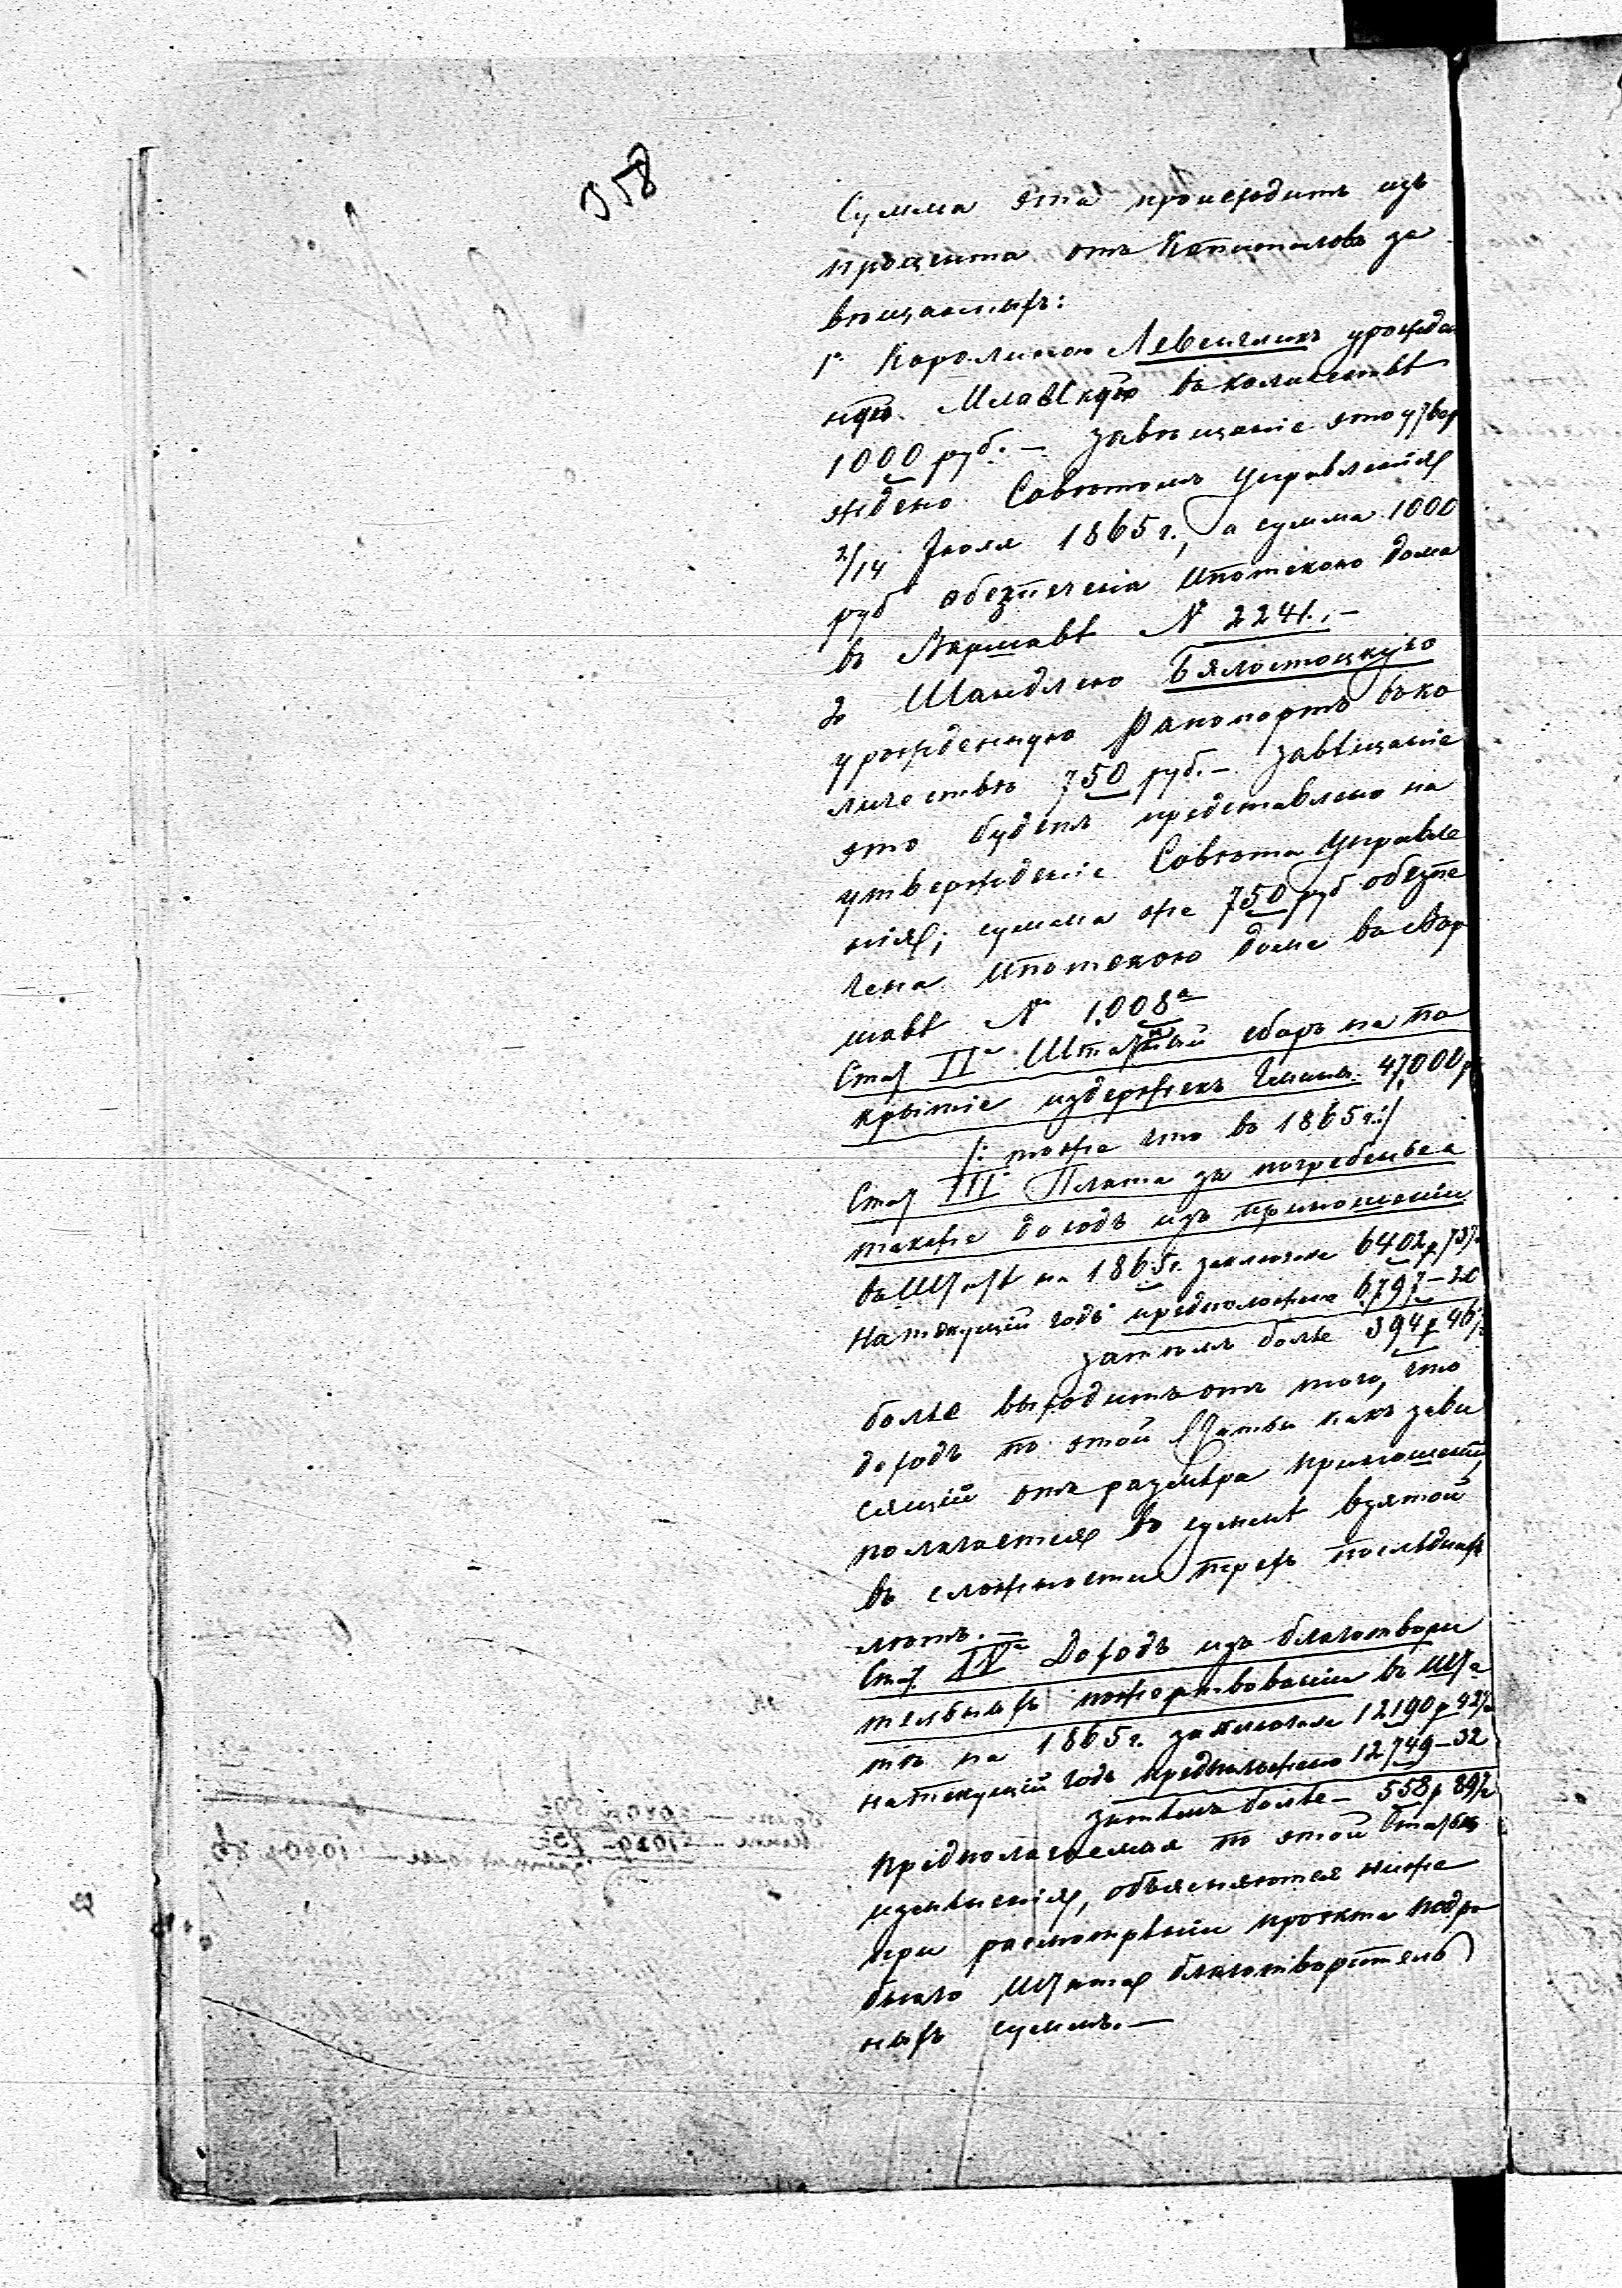 358
Сумма эта происходитъ изъ
процента отъ Капиталовъ за
вѣщанныхъ:
1º Каролиною Левенчикъ урожден
ную в количествѣ
1000 руб. — завѣщаніе это утвер
ждено Совѣтомъ Управленія
2/14 Іюля 1865 г., а сумма 1000
руб обезпечена Ипотекою дома
въ Варшавѣ № 2241. —
2º Бялостоцкую
урожденную Рапопортъ въ ко
личествѣ 750 руб. — завѣщаніе
это будетъ представлено на
утвержденіе Совѣта Управле
нія; сумма же 750 руб обезпе
чена Ипотекою дома въ Вар
шавѣ № 1008ª
Стат II Штатный сборъ на по
крытіе издержекъ Гмины 47,000 р
/: тоже что въ 1865 г :/
Стат III Плата за погребенье а
также доходъ изъ приношеній
въ Штатѣ на 1865 г. заключала 6402 р 73½
На текущій годъ предположено 6797–20
затѣмъ болѣе 394 р 46½
болѣе выходитъ отъ того, что
доходъ по этой Статьи какъ зави
сящій отъ размѣра приношеній,
полагается въ суммѣ взятой
въ сложности трехъ послѣднихъ
лѣтъ. —
Стат IV Доходъ изъ благотвори
тельныхъ пожертвованій въ Шта
тѣ на 1865 г. заключала 12190 р 42½
на текущій годъ предположено 12749–32
затѣмъ болѣе — 558 р 89½
Предполагаемая по этой Статьи
измѣненія, объясняются ниже
при разсмотрѣніи проэкта подро
бнаго Штата благотворитель
ныхъ суммъ. —